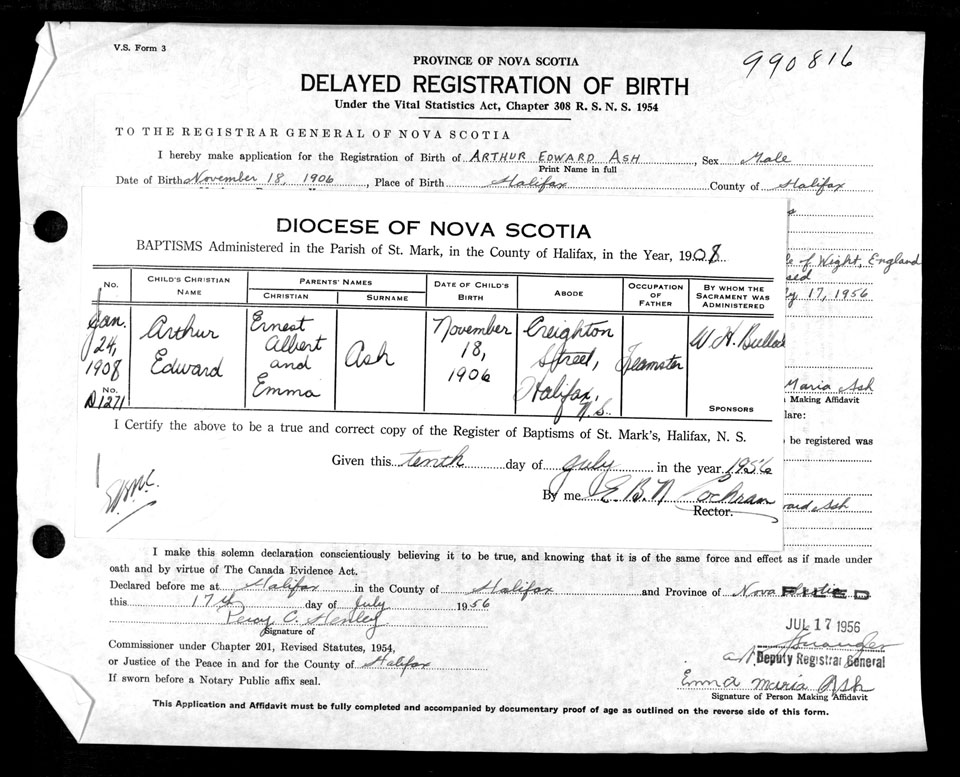 V.S. Form 3
990816
PROVINCE OF NOVA SCOTIA
DELAYED REGISTRATION OF BIRTH
Under the Vital Statistics Act, Chapter 308 R. S. N. S. 1954
TO THE REGISTRAR GENERAL OF NOVA SCOTIA
I hereby make application for the Registration of Birth of ARTHUR EDWARD ASH, Sex Male
Print Name in full
Date of Birth November 18, 1906, Place of Birth Halifax County of Halifax
DIOCESE OF NOVA SCOTIA
BAPTISMS Administered in the Parish of St. Mark, in the County of Halifax, in the Year, 1908
of Wight, England
17, 1956
No. CHILD'S CHRISTIAN NAME PARENTS' NAMES CHRISTIAN SURNAME DATE OF CHILD'S BIRTH ABODE OCCUPATION OF FATHER BY WHOM THE SACRAMENT WAS ADMINISTERED
Jan. 24, 1908 Arthur Edward Ernest Albert and Emma Ash November 18, 1906 Creighton Street, Halifax, N.S. Teamster W. H. Bullock
No. D1271
SPONSORS
Maria Ash
Making Affidavit
lare:
be registered was
I Certify the above to be a true and correct copy of the Register of Baptisms of St. Mark's, Halifax, N. S.
Given this tenth day of July in the year 1956
By me E. B. N. Cochran
Rector.
ward Ash
I make this solemn declaration conscientiously believing it to be true, and knowing that it is of the same force and effect as if made under
oath and by virtue of The Canada Evidence Act.
Declared before me at Halifax in the County of Halifax and Province of Nova Scotia
FILED
this 17th day of July 1956
JUL 17 1956
Percy C. Henley
Signature of
Commissioner under Chapter 201, Revised Statutes, 1954,
or Justice of the Peace in and for the County of Halifax
Deputy Registrar General
If sworn before a Notary Public affix seal.
Emma Maria Ash
Signature of Person Making Affidavit
This Application and Affidavit must be fully completed and accompanied by documentary proof of age as outlined on the reverse side of this form.